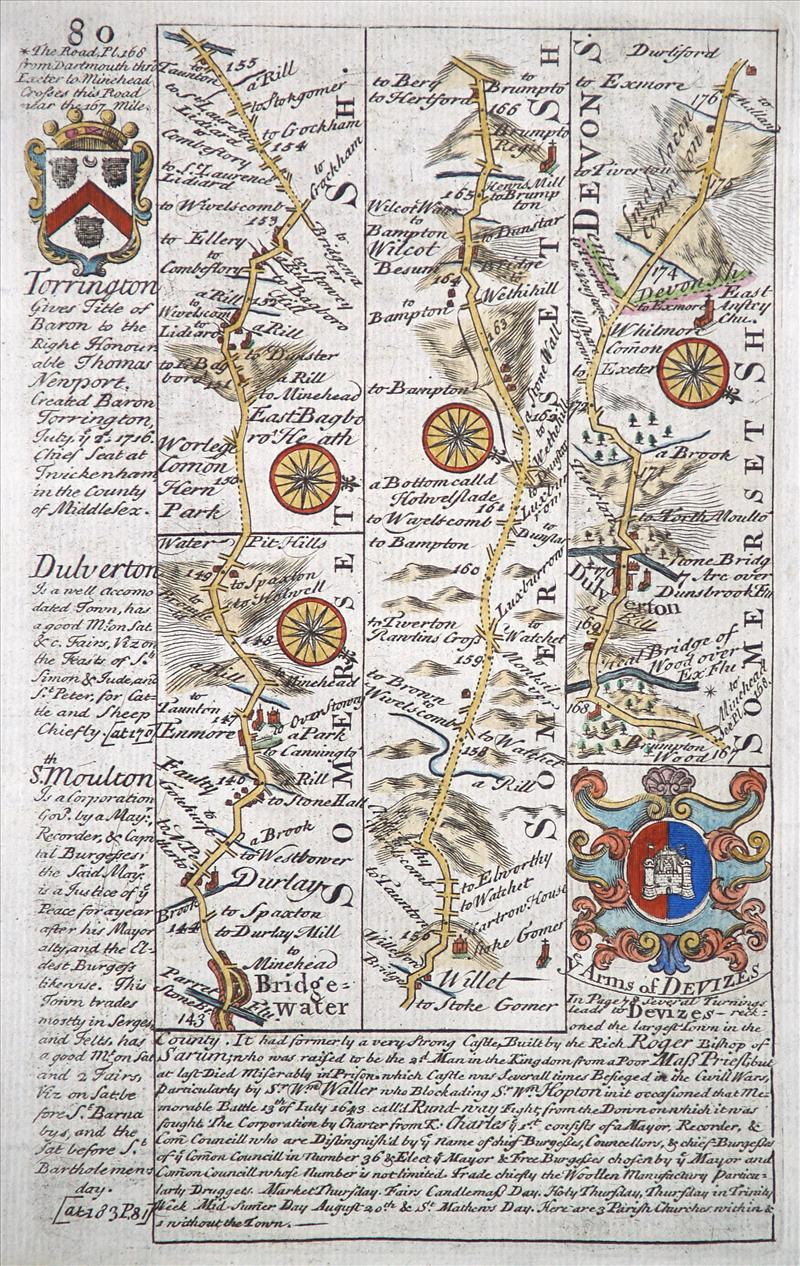 80
* The Road, Pl. 168
from Dartmouth thro
Exeter to Minehead
Crosses this Road
near the 167 Mile.
Torrington
Gives Title of
Baron to the
Right Honour
able Thomas
Newport.
Created Baron
Torrington,
July, yͤ 2ͩ 1716.
Chief Seat at
Twickenham,
in the County
of Middlesex.
Dulverton
Is a well accomo
dated Town, has
a good Mͭ on Sat.
& c. Fairs, Viz on
the Feasts of Sͭ
Simon & Jude, and
Sͭ Peter, for Cat-
tle and Sheep
Chiefly. [at 170]
Sͭͪ. Moulton
Is a Corporation
Govͩ. by a Mayͬ,
Recorder, & Capi
tal Burgesses;
the Said Mayͬ
is a Justice of yͤ
Peace for a year
after his Mayor
alty, and the El-
dest Burgess
likewise. This
Town trades
mostly in Serges,
and Felts, has
a good Mͭ on Sat
and 2 Fairs,
Viz on Sat be
fore Sͭ Barna
bys, and the
Sat before Sͭ
Bartholemens
day.
[at 183 P.81]
Taunton
155
a Rill
to Stokgomer
to Crockham
154
to Crackham
Combeflory
to Sͭ Laurence
Lidiard
to Wivelscomb
153
to Bridgend
to Ellery
to
Combeflory
to Bagboro
a Rill
152
to
Wivelscom
Lidiard
a Rill
to Dunster
a Rill
to Minehead
East Bagbo
ro' Heath
151
Worlege
Comon
150
Hern
Park
Water
Pit-Hills
149
to Spaxton
to Holwell
148
a Rill
Minehead
to
Taunton
147
to Over Stowey
a Park
Enmore
to Cannington
146
a Rill
to Stone Hall
Faulty
a Brook
to Westbower
Durlay
Brook
144
to Spaxton
to Durlay Mill
to
Minehead
Bridge=
water
Parret
Flu
143
SOMERSETSH.
to Bery
to Hertford
to
Brumpton
166
Brumpto
Regis
Henis Mill
165
to Brump
ton
Wilcot Water
Bampton
Wilcot
Besum
to Dunstar
164
Wethihill
to
Bampton
163
a Stone Wall
to Bampton
162
a Bottom calld
Holwelslade
161
to Wavelscomb
to Bampton
to Dunstar
160
Luxburrow
to Tiverton
Rawlins Cross
to Watchet
159
to Brown
Wivelscomb
to Watchet
158
a Rill
to Elworthy
to Watchet
to Taunton
Hartrow House
156
Stoke Gomer
Willet
to Stoke Gomer
SOMERSETSH
DEVONS.
Durlsford
to Exmore
176
to Tiverton
Small Facon
Common
175
174
Devonsh
to Exmore
East
Anstey
Chu.
Whitmore
Comon
to Exeter
172
a Brook
171
to North Moulto
Stone Bridg
7 Arc over
Dunsbrook Flu
170
Dulverton
a Rill
169
Great Bridge of
Wood over
Ex Flu
*
168
to
Minehead
see Pl. 168
Brumpton
Wood
167
SOMERSETSH
yͤ Arms of DEVIZES
In Page 78 Several Turnings
leads to Devizes - reck-
oned the largest Town in the
County. It had formerly a very Strong Castle, Built by the Rich Roger Bishop of
Sarum; who was raised to be the 2ͩ Man in the Kingdom from a Poor Mass Priest; but
at last Died Miserably in Prison, which Castle was Severall times Besieged in the Civill Wars,
particularly by Sͬ Wͫ Waller who Blockading Sͬ Wͫ Hopton in it occasioned that Me-
morable Battle 13ͭͪ of July 1643 call'd Rund-way Fight, from the Down on which it was
fought. The Corporation by Charter from K. Charles yͤ 1ͬͭ consists of a Mayor, Recorder, &
Com Councill who are Distinguish'd by yͤ name of chief Burgesses, Councellors, & chief Burgesses
of yͤ Comon Councill in Number 36 & Elect yͤ Mayor & Free Burgesses chosen by yͤ Mayor and
Comon Councill whose Number is not limited. Trade chiefly the Woollen Manufactory particu-
larly Druggets. Market Thursday. Fairs Candlemass Day, Holy Thursday, Thursday in Trinity
Week Mid-Sumer Day August 20ͭͪ & Sͭ Mathews Day. Here are 3 Parish Churches within &
1 without the Town.